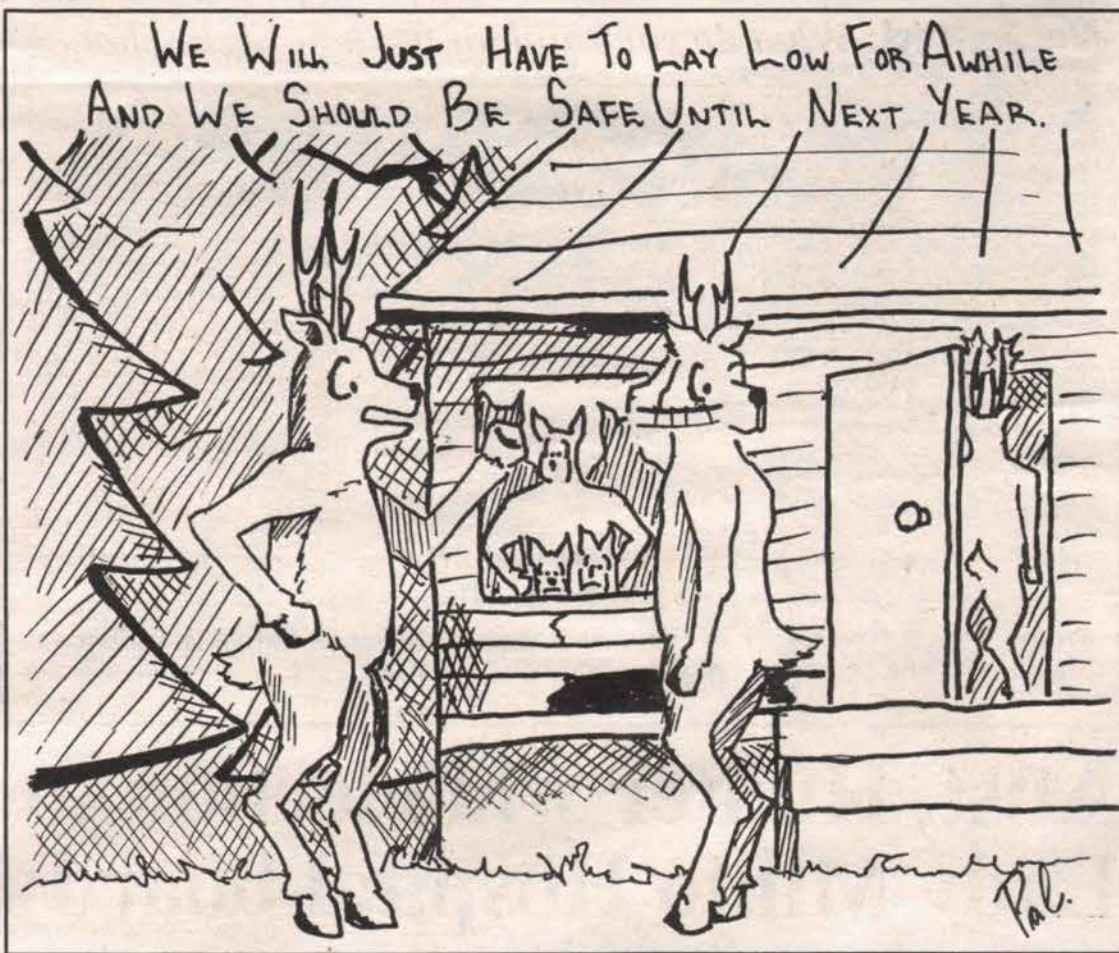 We Will Just Have To Lay Low For Awhile
And We Should Be Safe Until Next Year.